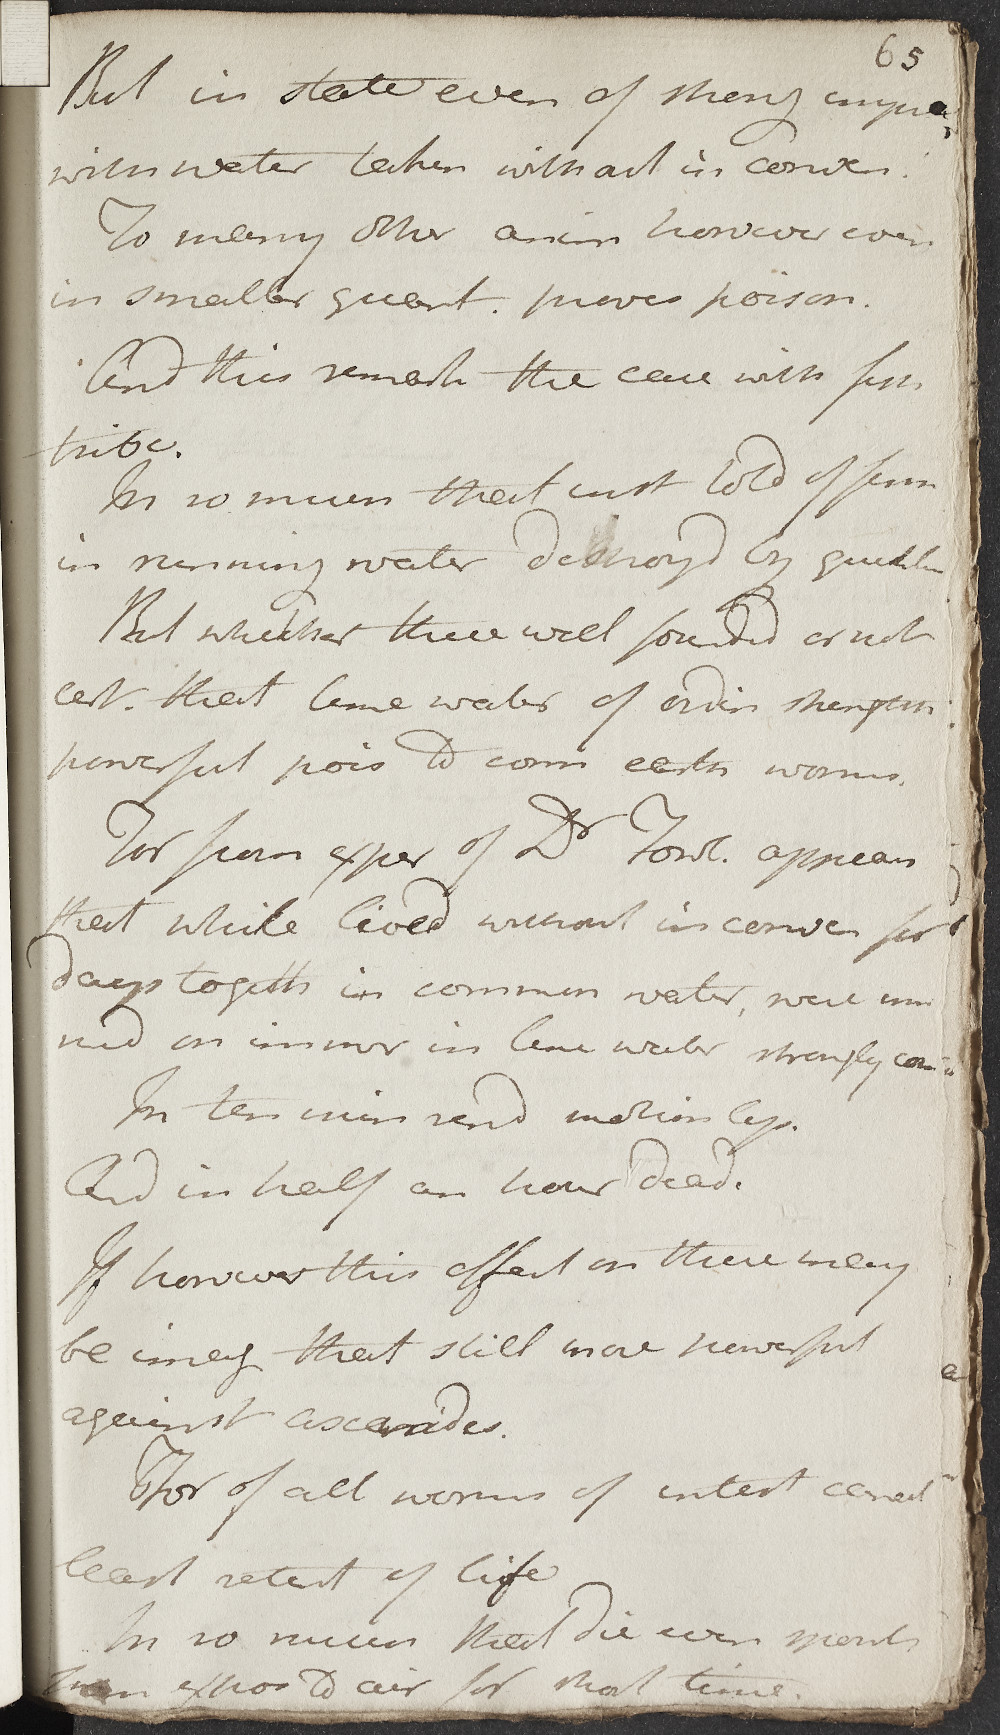 65
But in state even of strong impreg
with water taken without in conven.
To many other anim however even
in smaller quant. proves poison.
And this remark the case with fish
tribe.
In so much that inst told of some
in running water destroyd by quickli
But whether these well founded or not
cert. that lime water of ordin strength
powerful pois to com earth worms.
For from exper of Dr Fowl. appears
that while lived without in conven for
days togeth in common water, were
on immer in lime water strongly con
In ten min rend motionless.
And in half an hour dead.
If however this effect on these may
be imag that still more powerful
against ascarides.
For of all worms of intest canal
least retent of life
In so much that die even spont
when expos to air for short time.